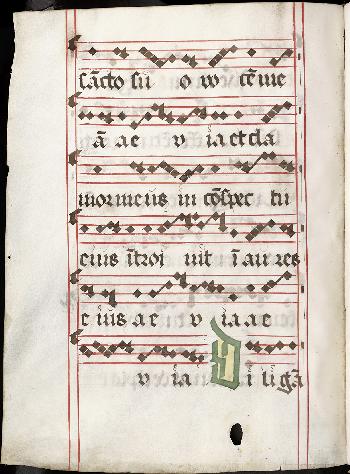 sācto su o vo cē me
ā ae v ia et cla
mor meus in cōspec tu
eius ītroi uit ī aures
e ius ae v ia ae
v ia Diligā